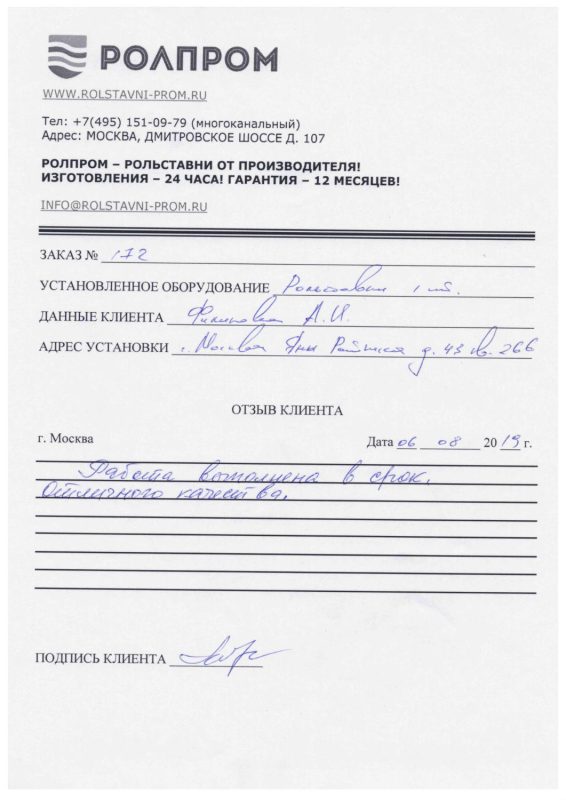 РОЛПРОМ
WWW.ROLSTAVNI-PROM.RU
Тел: +7(495) 151-09-79 (многоканальный)
Адрес: МОСКВА, ДМИТРОВСКОЕ ШОССЕ Д. 107
РОЛПРОМ – РОЛЬСТАВНИ ОТ ПРОИЗВОДИТЕЛЯ!
ИЗГОТОВЛЕНИЯ – 24 ЧАСА! ГАРАНТИЯ – 12 МЕСЯЦЕВ!
INFO@ROLSTAVNI-PROM.RU
ЗАКАЗ № 172
УСТАНОВЛЕННОЕ ОБОРУДОВАНИЕ Рольставни 1 шт.
ДАННЫЕ КЛИЕНТА А.И.
АДРЕС УСТАНОВКИ г. Москва Яна Райниса д. 43 кв. 266
ОТЗЫВ КЛИЕНТА
г. Москва Дата 06 08 2019 г.
Работа выполнена в срок.
Отличного качества.
ПОДПИСЬ КЛИЕНТА